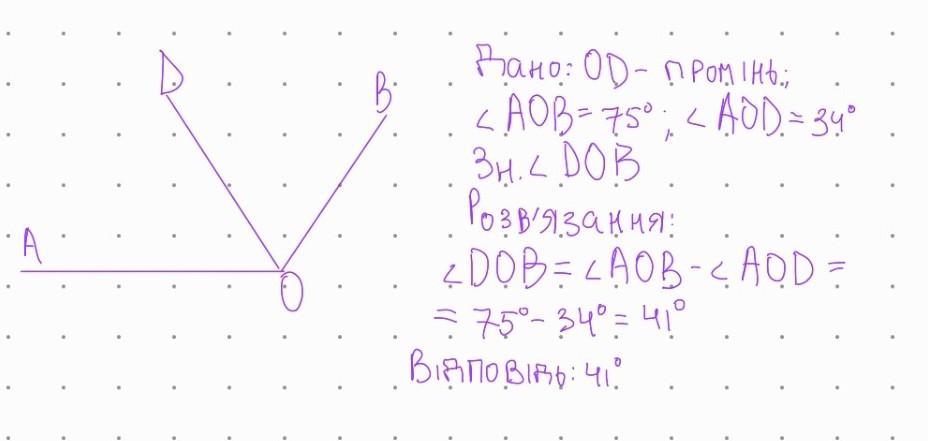 D
B
A
O
Дано: OD - промінь;
∠AOB = 75°; ∠AOD = 34°
Зн. ∠DOB
Розв'язання:
∠DOB = ∠AOB - ∠AOD =
= 75° - 34° = 41°
Відповідь: 41°